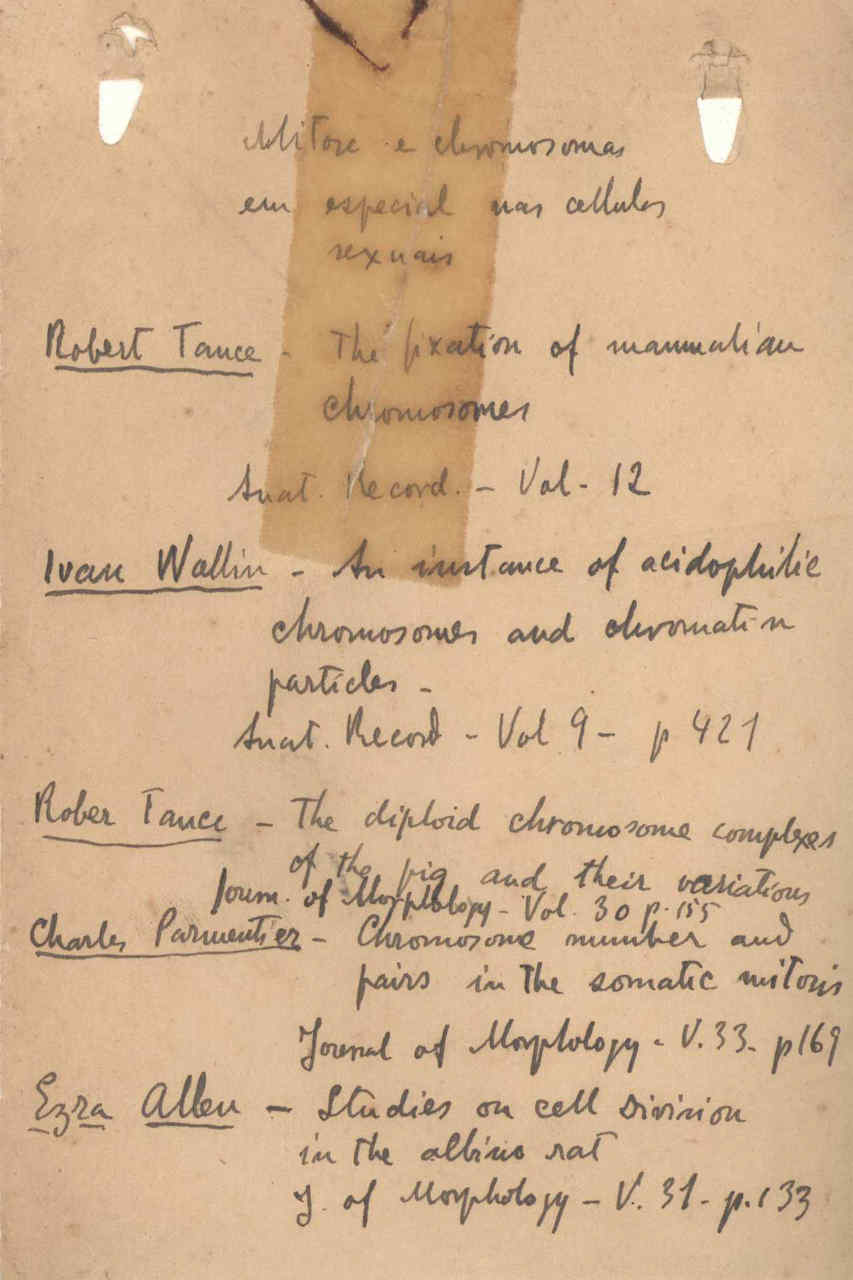 Mitose e chromosomas
em especial nas cellulas
sexuais
Robert Tance - The fixation of mammalian
chromosomes
Anat. Record. - Vol - 12
Ivan Wallin - An instance of acidophilic
chromosomes and chromatin
particles -
Anat. Record - Vol 9 - p 421
Rober Tance - The diploid chromosome complexes
of the pig and their variations
Journ. of Morphology - Vol. 30 p. 155
Charles Parmentier - Chromosome number and
pairs in the somatic mitosis
Journal of Morphology - V. 33 - p169
Ezra Allen - Studies on cell division
in the albino rat
J. of Morphology - V. 31 - p. 133